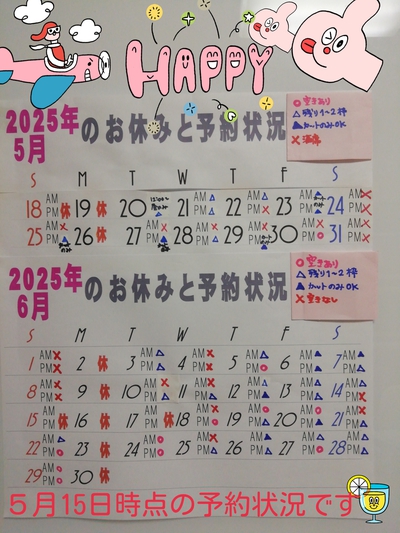 HAPPY
2025年
5月
のお休みと予約状況
○空きあり
△残り1~2枠
▲カットのみOK
×満席
S M T W T F S
18 AM PM 休 19 休 20 AM PM 21 AM PM 22 AM PM 23 AM PM 24 AM PM
25 AM PM 26 休 27 AM PM 28 AM PM 29 AM PM 30 AM PM 31 AM PM
2025年
6月
のお休みと予約状況
○空きあり
△残り1~2枠
▲カットのみOK
×空きなし
S M T W T F S
1 AM× PM× 2 休 3 AM△ PM△ 4 AM× PM× 5 AM△ PM△ 6 AM▲ PM▲ 7 AM△ PM▲
8 AM× PM× 9 休 10 AM× PM○ 11 AM× PM△ 12 AM△ PM△ 13 AM△ PM△ 14 AM× PM×
15 AM PM 休 16 休 17 AM PM 休 18 AM× PM○ 19 AM△ PM○ 20 AM△ PM▲ 21 AM△ PM×
22 AM△ PM○ 23 休 24 AM○ PM○ 25 AM× PM△ 26 AM△ PM△ 27 AM○ PM△ 28 AM△ PM△
29 AM○ PM○ 30 休
5月15日時点の予約状況です